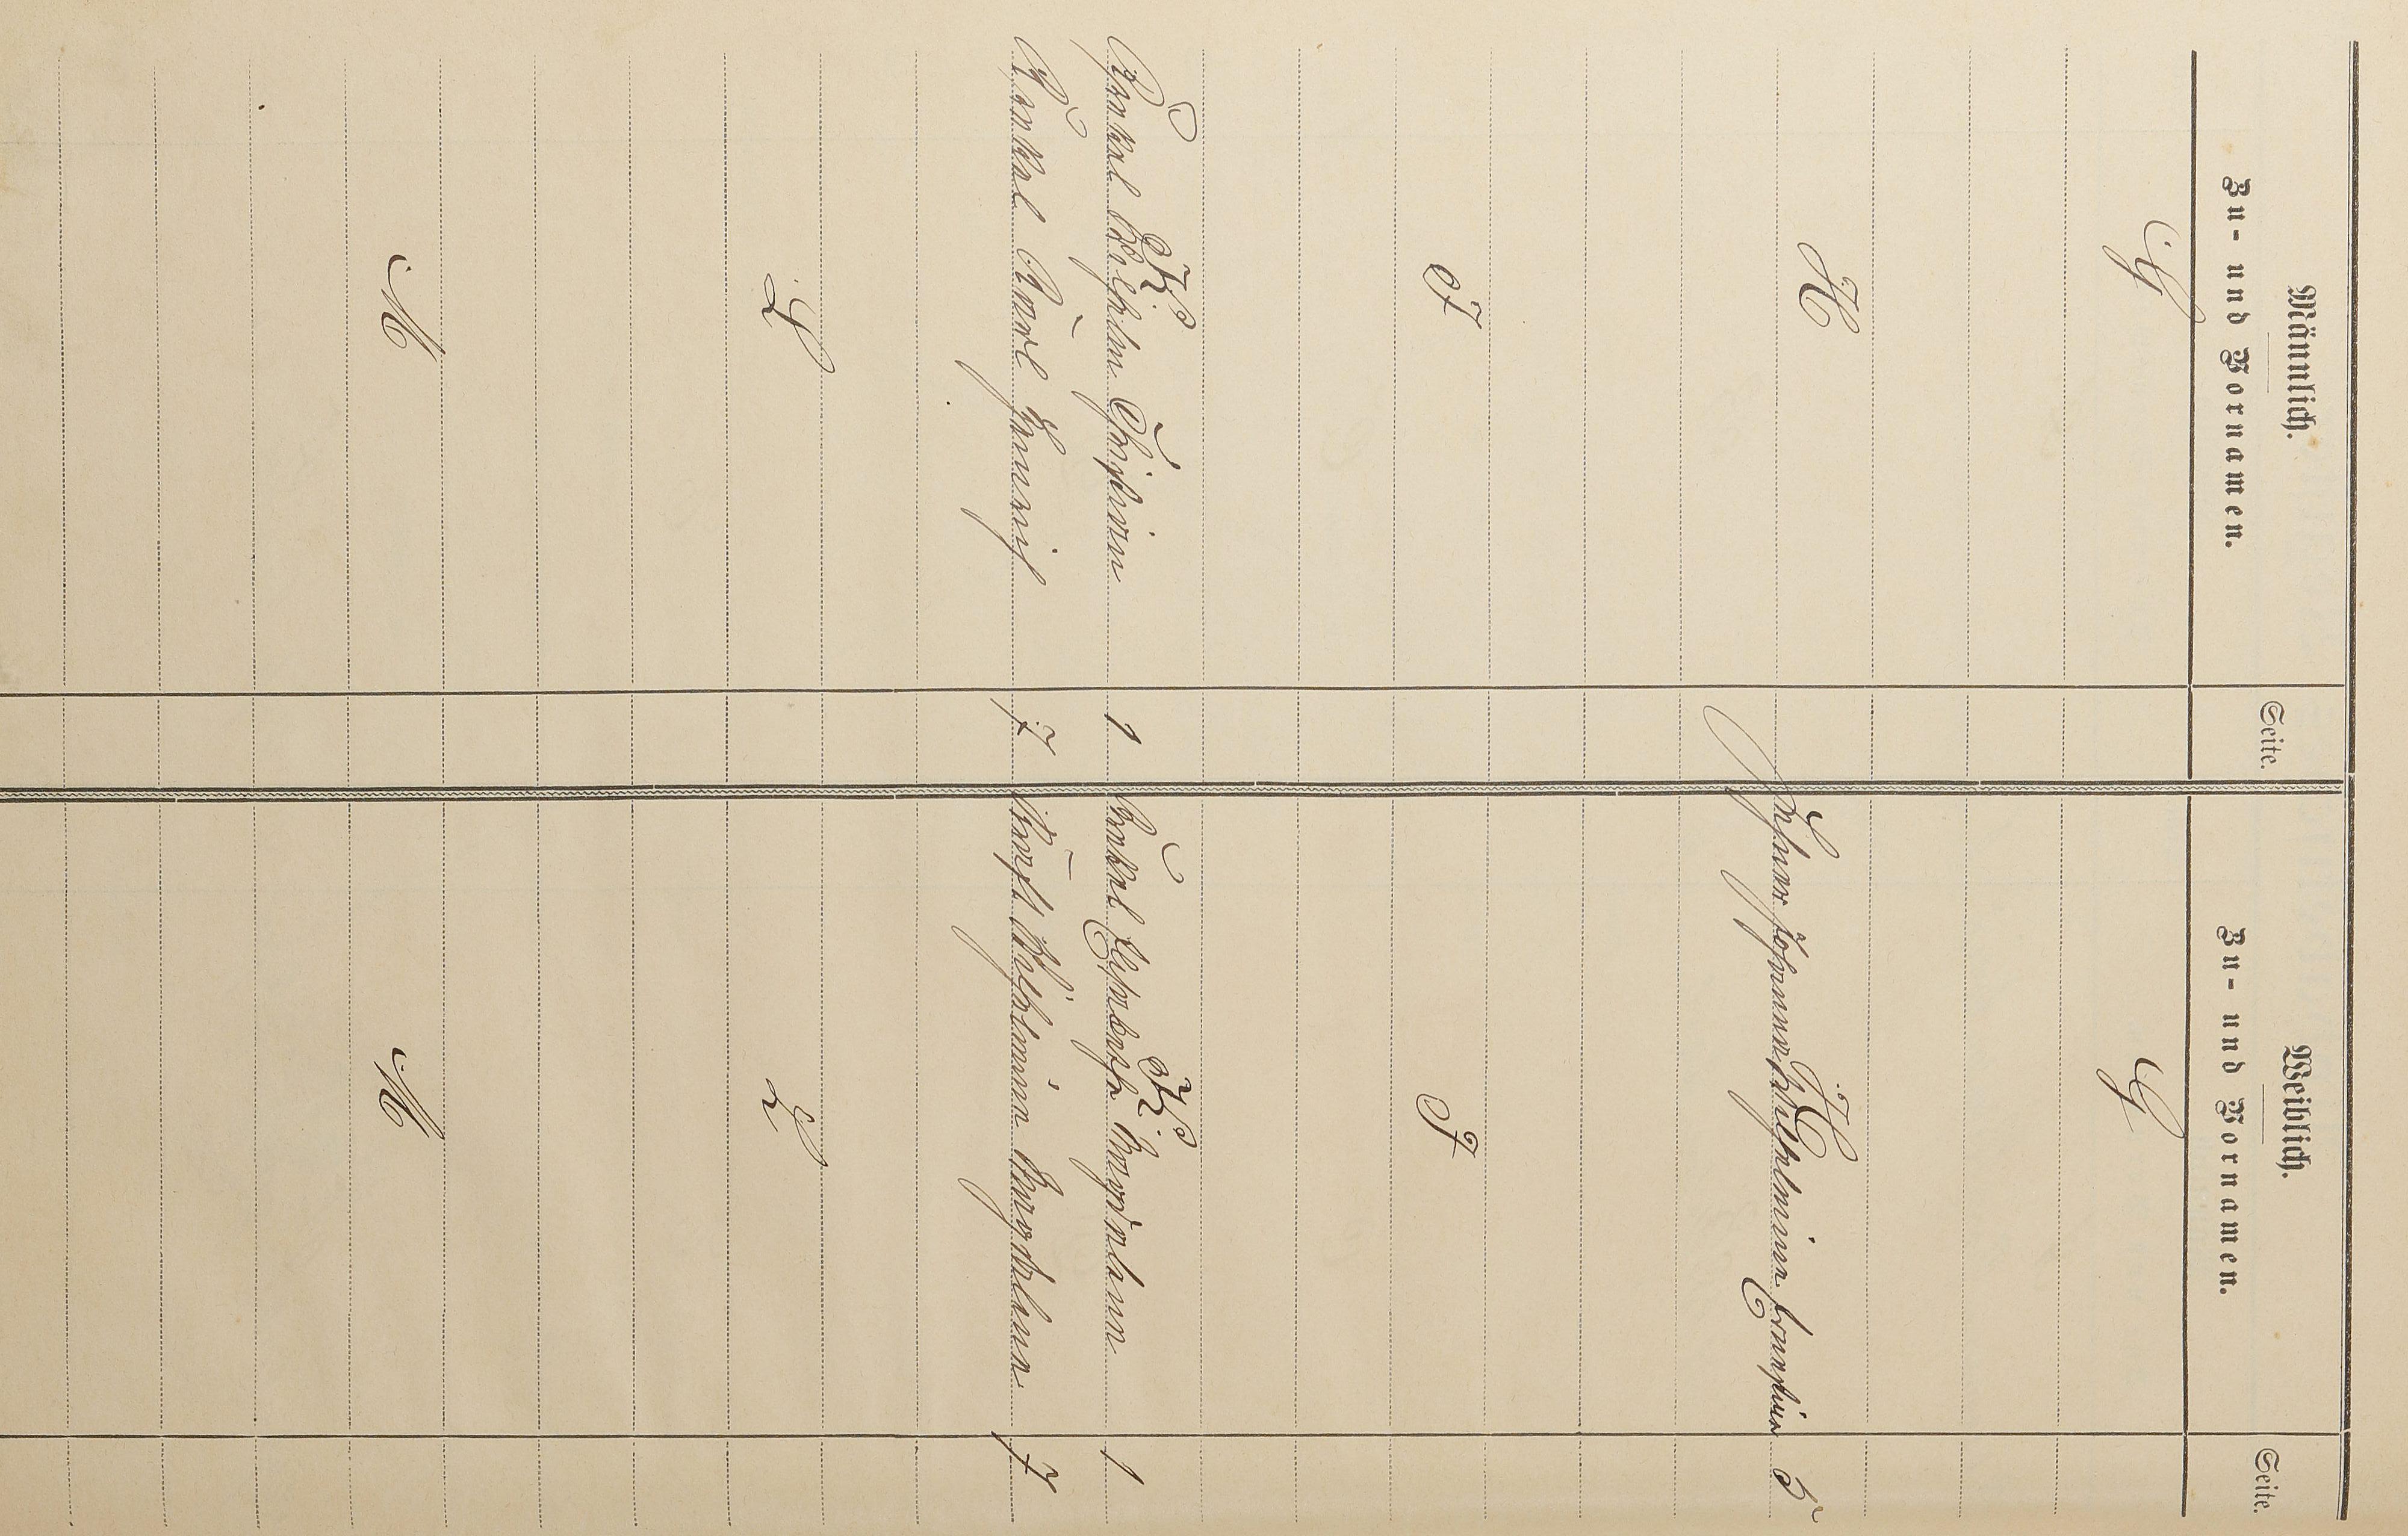 Männlich.
Zu- und Vornamen.
Seite.
G
H
J
K
Kunkel Wilhelm Christian 1
Kunkel Karl Heinrich 7
L
M
Weiblich.
Zu- und Vornamen.
Seite.
G
H
Johanna Wilhelmine 5
J
K
Kunkel Elisabetha Magdalena 1
Wilhelmine Magdalena 7
L
M